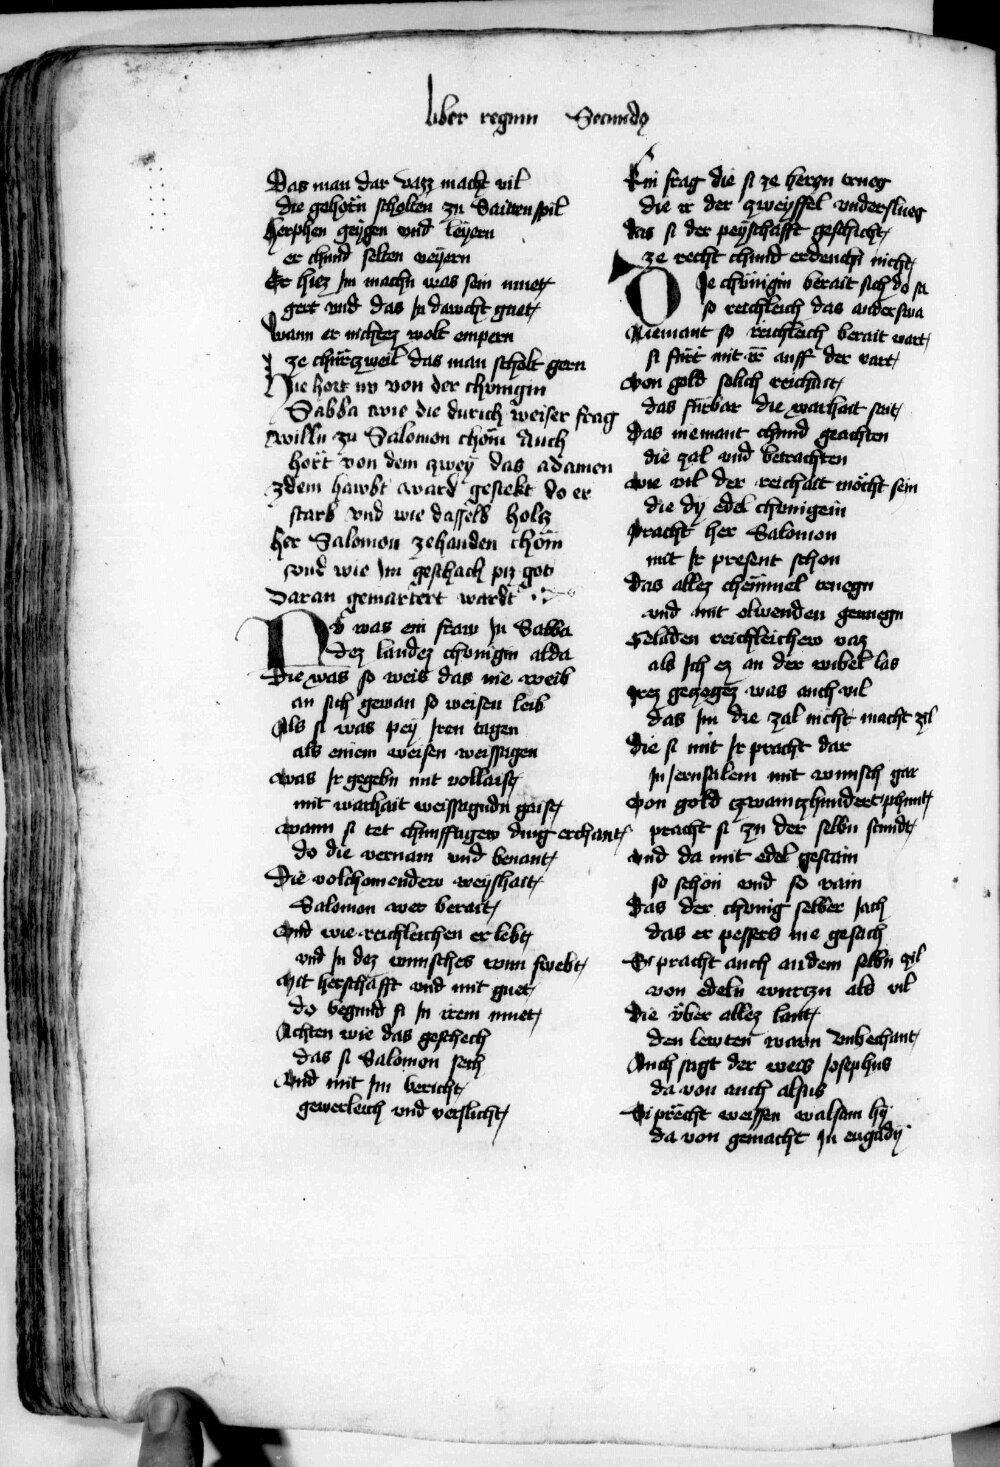 liber regum Secundus
Das man dar vazz macht vil
die gehorn scholten zu Saitten spil
Herphen geygen vnd leyern
er chund selten veyern
Er hiez Im machn was sein muet
gert vnd das In dawcht guet
Wann er nichtez wolt empern
ze churczweil das man scholt gern
Hie hort nv von der chvnigin
Sabba wie die durich weiser frag
willn zu Salomon chom Auch
hort von dem zwey das adamen
zdem hawbt ward gestekt do er
starb vnd wie dasselb holz
her Salomon zehanden chom
vnd wie Im geschach piz got
Daran gemartert wardt
Nv was ein fraw In Sabba
dez landez chvnigin alda
Die was so weis das nie weib
an sich gewan so weisen leib
Als si was pey Iren tagen
als einem weisen weissagen
was Ir gegebn mit vollaist
mit warhait weissagndn gaist
wann si tet chunfftigew ding erchant
do die vernam vnd benant
Die volchomendew weyshait
Salomon wer berait
vnd wie reichleichen er lebt
vnd In dez wunsches wun swebt
Mit herschafft vnd mit guet
do begund si In irem muet
Achten wie das geschech
das si Salomon sech
vnd mit Im bericht
gewerleich vnd verslicht
Ein frag die si ze herzn trueg
die er der zweyffel vnderslueg
das si der peyschafft geschicht
ze recht chund erdenchn nicht
Die chvnigin berait sich do sa
so reichleich das anderswa
Niemant so reichleich berait wart
si fuert mit ir auff der vart
von gold solich reichait
das furbar die warhait seit
Das niemant chund geachten
die zal vnd betrachten
wie vil der reichait mocht sein
die dy edel chvnigein
Pracht her Salomon
mit Ir present schon
das allez chemmel truegn
vnd mit olwenden genuegn
Geladen reichleichew vaz
als Ich ez an der wibel las
Irez gezogez was auch vil
das Im die zal nicht macht zil
die si mit Ir pracht dar
In Jerusalem mit wunsch gar
von gold zwainczhundert phunt
pracht si zu der selbn stundt
vnd da mit edel gestain
so schon vnd so rain
das der chvnig selber Jach
das er pessers nie gesach
Si pracht auch an dem selbn zil
von edeln wurczn als vil
die vber allez lant
den lewten warn vnbechant
Auch sagt der weis Josephus
da von auch alsus
Si precht weissen walsam hy
da von gemacht In engady